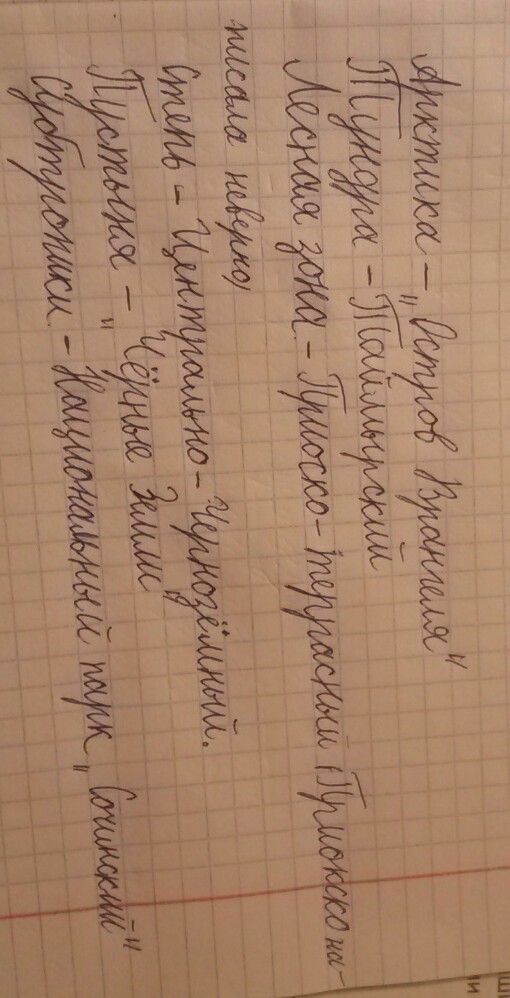 Арктика - „Остров Врангеля"
Тундра - Таймырский
Лесная зона - Приоско-террасный (Приокско на-
писала неверно)
Степь - Центрально-Чернозёмный.
Пустыня - „Чёрные Земли
Субтропики - Национальный парк „Сочинский"